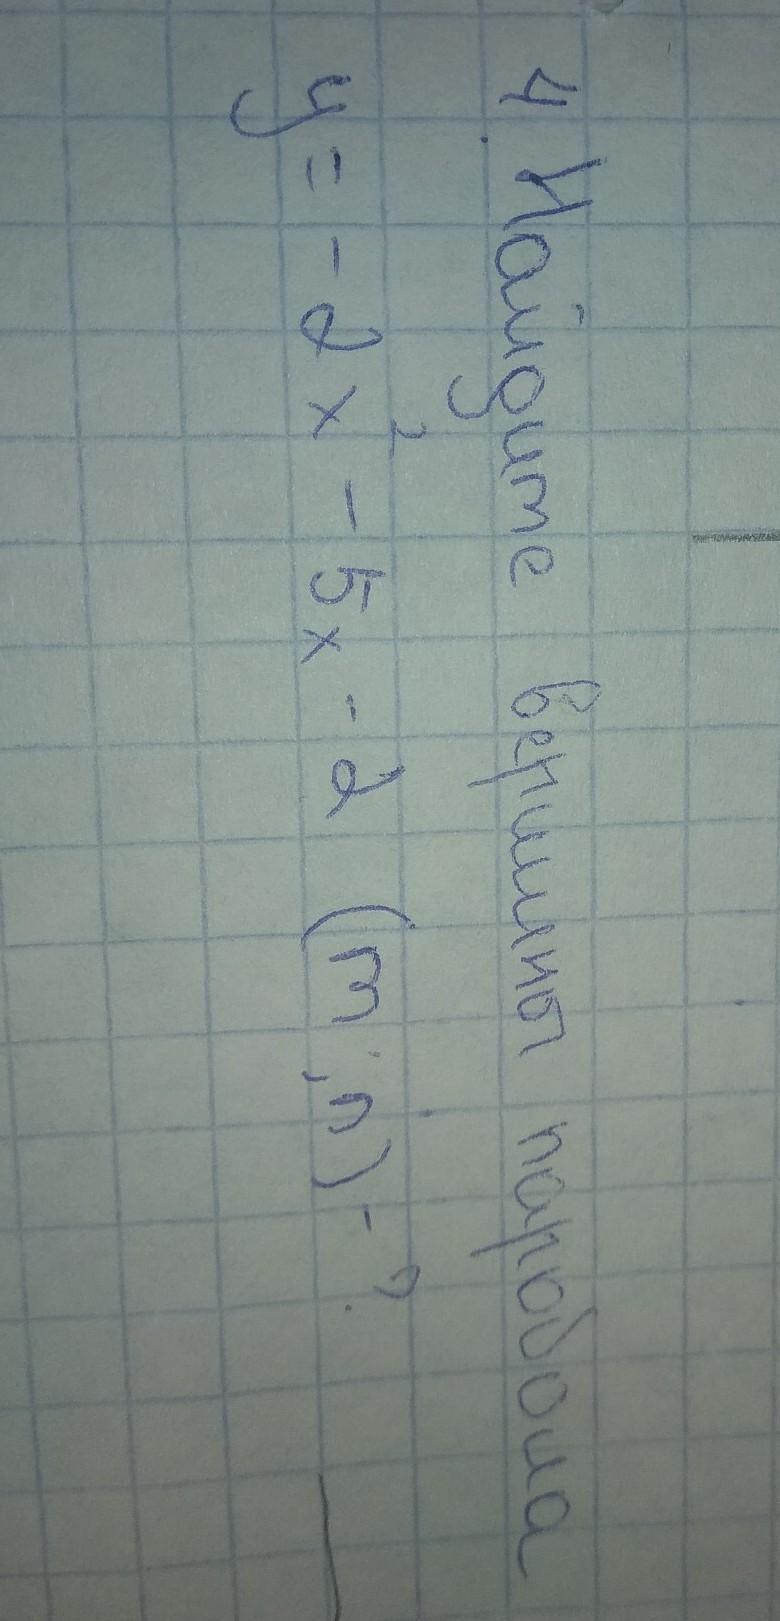 4. Найдите вершины парабола
y = -2x² - 5x - 2 (m;n) - ?